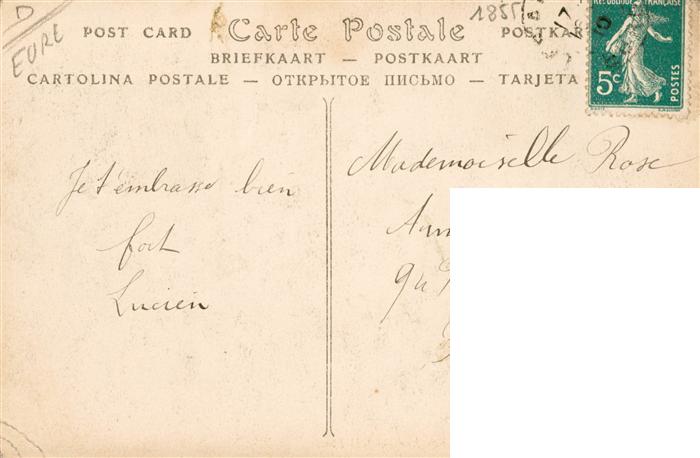 D
EURE
1855
POST CARD Carte Postale POSTKAR
BRIEFKAART — POSTKAART
CARTOLINA POSTALE — ОТКРЫТОЕ ПИСЬМО — TARJETA
RÉPUBLIQUE FRANÇAISE
5c
POSTES
Je t'embrasse bien
fort
Lucien
Mademoiselle Rose